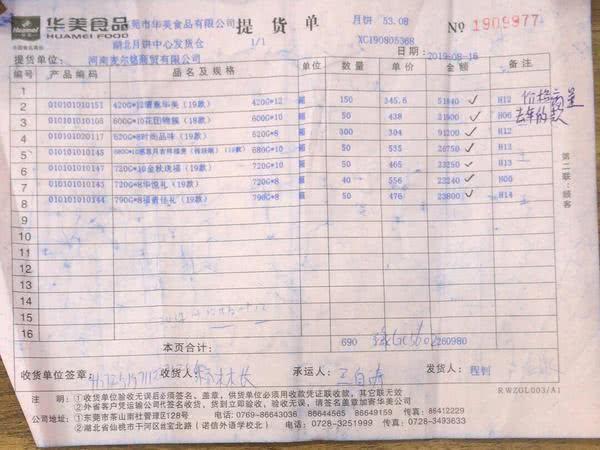 华美食品
HUAMEI FOOD
Huamei
东莞市华美食品有限公司
提货单
月饼 53.08
№ 1909977
湖北月饼中心发货仓 1/1
XC190805368
提货单位： 河南麦尔铭商贸有限公司
日期： 2019-08-16
编号 产品编码 品名及规格 单位 数量 单价 金额 备注
1
2 010101010151 420G*12情意华美（19款） 420G*12 箱 150 345.6 51840 H12
3 600G*10花团锦簇（19款） 600G*10 箱 50 438 21900 H06
4 010101020117 620G*8时尚品味（19款） 620G*8 箱 300 304 91200 H12
5 010101010145 680G*10 箱 50 535 26750 H13
6 010101010147 720G*10金秋送福（19款） 720G*10 箱 50 465 23250 H13
7 010101010145 720G*8华悦礼（19款） 720G*8 箱 40 556 22240 H00
8 010101010144 790G*8福贵佳礼（19款） 790G*8 箱 50 476 23800 H14
9
10
11
12
13
14
15
16
价格
去年的款
第二联：顾客
本页合计： 690 260980
收货单位签章： 收货人： 承运人： 发货人： 程钊
RWZGL003/A1
注 明：①收货单位验收无误后必须签名、盖章，供货单位必须用收款凭证联收款，其它联无效
②外省客户凭运输公司代签名收货，货到立即验收，验收无误，请签名盖章加寄华美公司
公司地址：①东莞市茶山南社管理区128号 电话：0769-86643036 86644565 86649159 传真：86412229
②湖北省仙桃市干河区丝宝北路（诺信外语学校北） 电话：0728-3251999 传真：0728-3493633